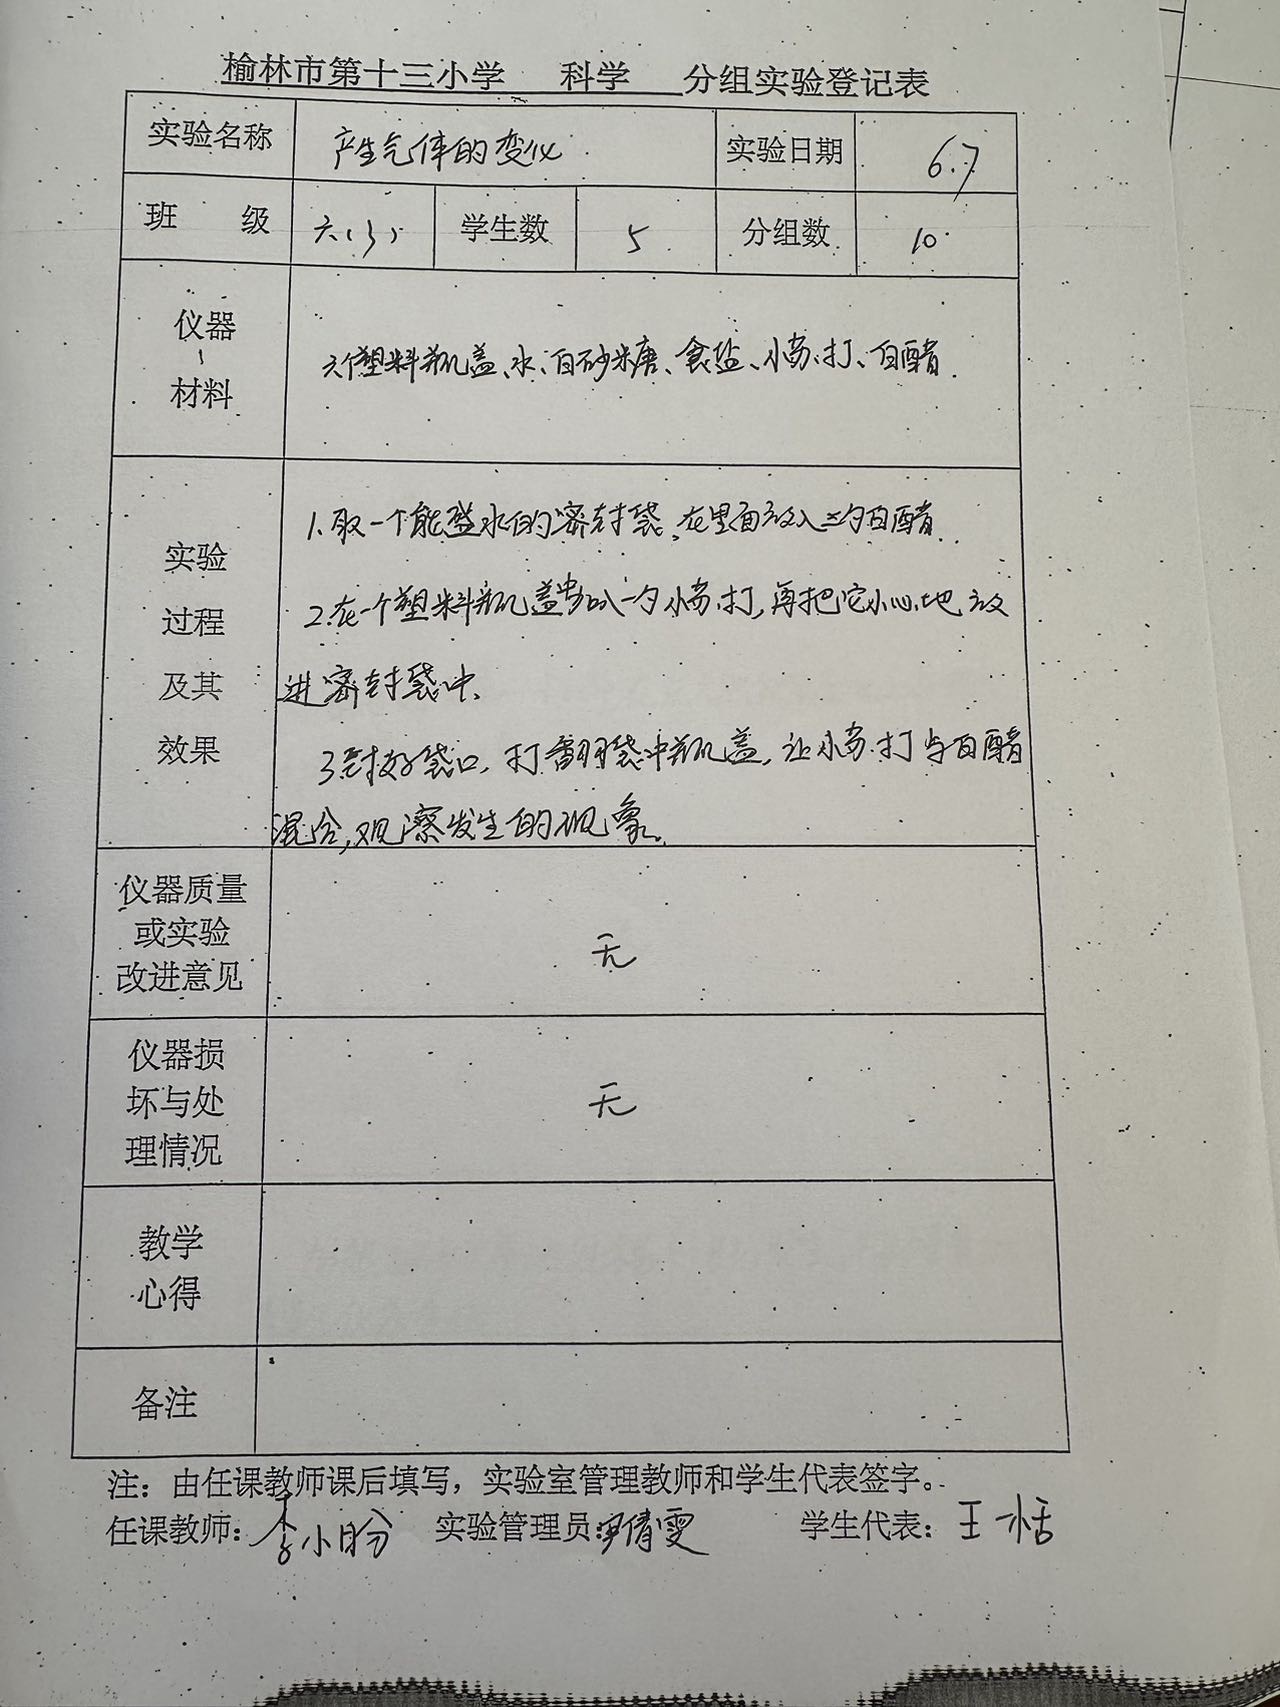 榆林市第十三小学 科学 分组实验登记表
实验名称 产生气体的变化 实验日期 6.7
班 级 六(3) 学生数 5 分组数 10
仪器
、
材料
六个塑料瓶盖、水、白砂糖、食盐、小苏打、白醋.
实验
过程
及其
效果
1.取一个能盛水的密封袋,在里面放入三勺白醋.
2.在一个塑料瓶盖中加入一勺小苏打,再把它小心地放
进密封袋中.
3.封好袋口,打翻袋中瓶盖,让小苏打与白醋
混合,观察发生的现象。
仪器质量
或实验
改进意见
无
仪器损
坏与处
理情况
无
教学
心得
备注
注：由任课教师课后填写，实验室管理教师和学生代表签字。
任课教师: 李小盼 实验管理员: 倩雯 学生代表: 王恬